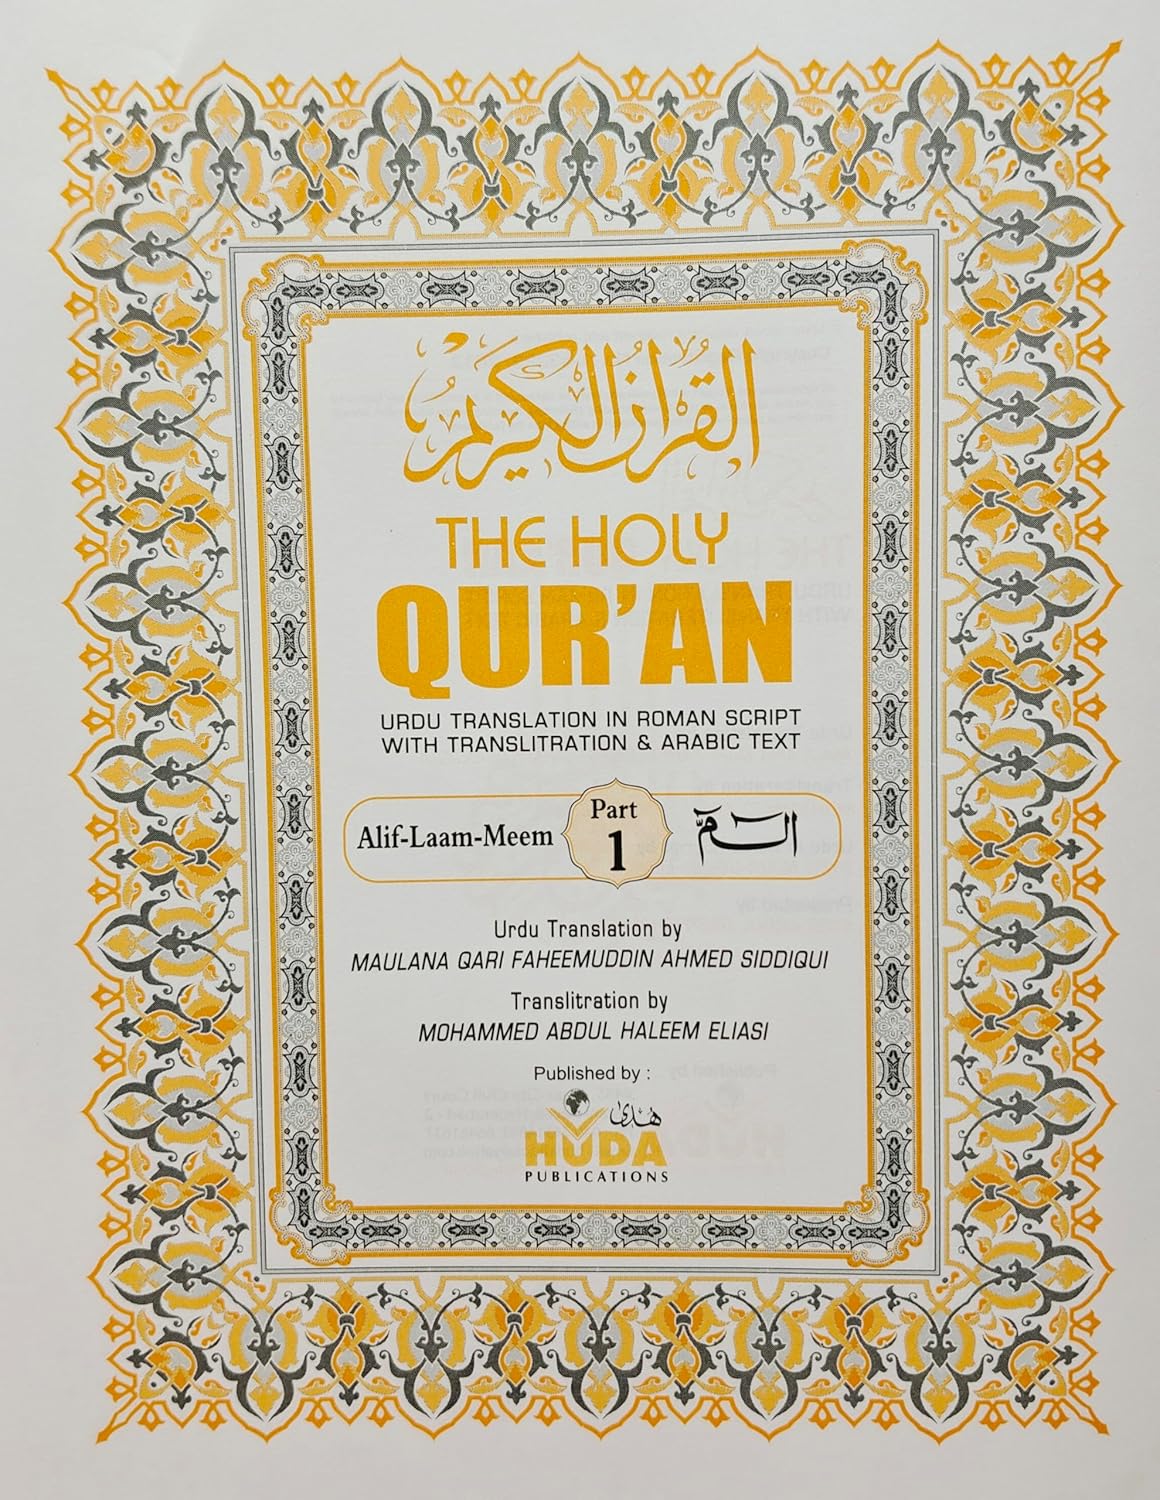 القرآن الكريم
THE HOLY
QUR'AN
URDU TRANSLATION IN ROMAN SCRIPT
WITH TRANSLITRATION & ARABIC TEXT
Alif-Laam-Meem Part 1 الٓمّٓ
Urdu Translation by
MAULANA QARI FAHEEMUDDIN AHMED SIDDIQUI
Translitration by
MOHAMMED ABDUL HALEEM ELIASI
Published by :
هدى
HUDA
PUBLICATIONS